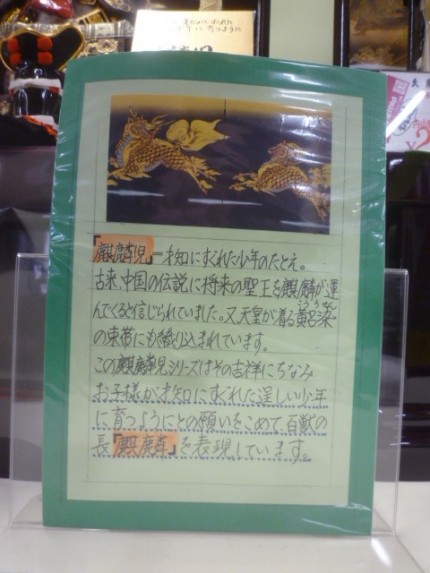 「麒麟児」―才知にすぐれた少年のたとえ。
古来、中国の伝説に将来の聖王を麒麟が運
んでくると信じられていました。又、天皇が着る黄櫨染
の束帯にも織り込まれています。
この麒麟児シリーズはその吉祥にちなみ
お子様が才知にすぐれた逞しい少年
に育つようにとの願いをこめて、百獣の
長『麒麟』を表現しています。